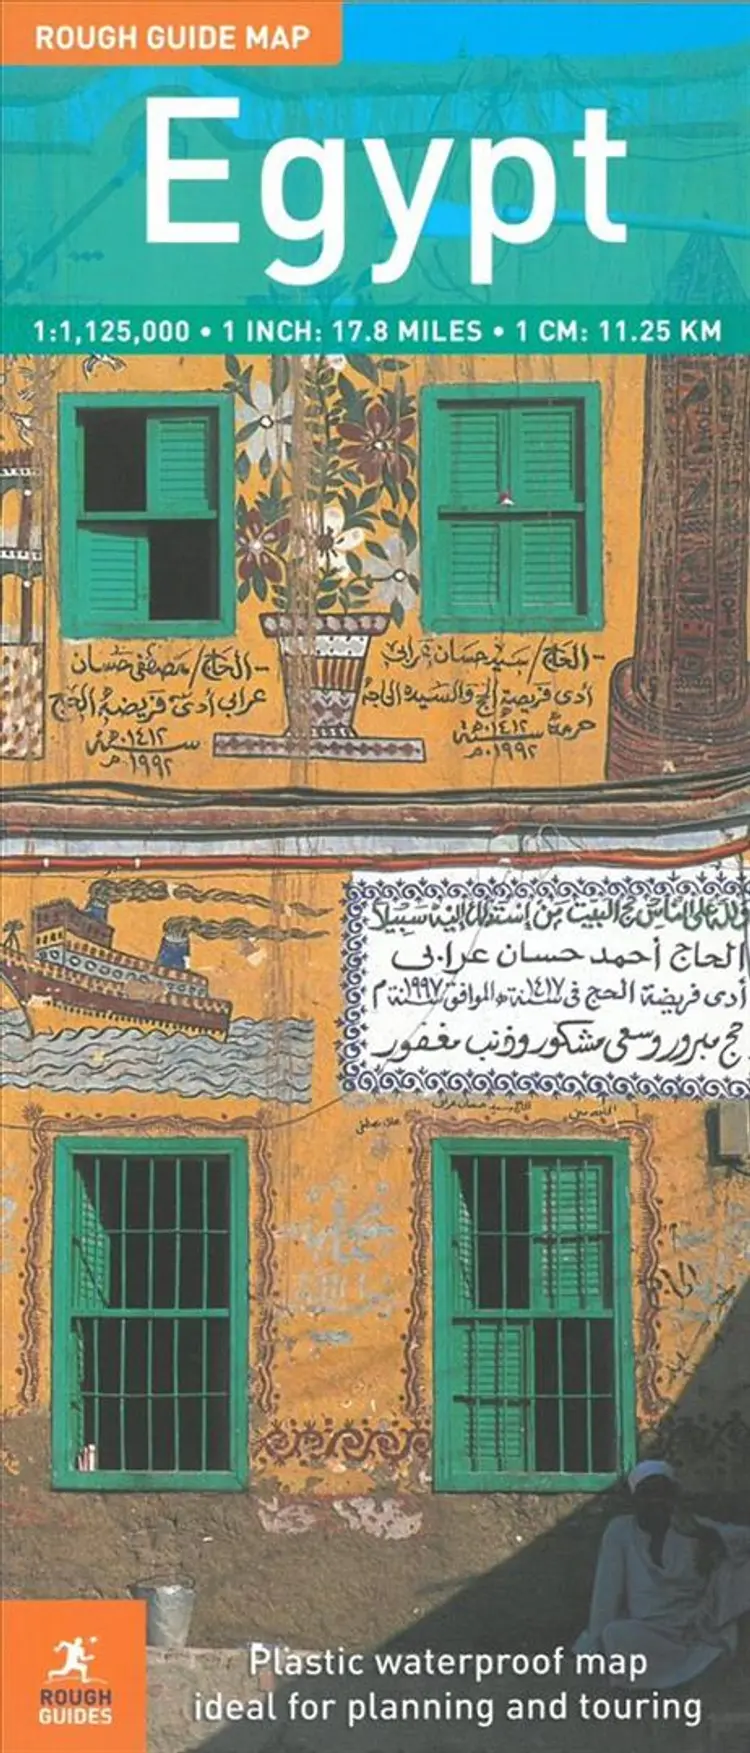 ROUGH GUIDE MAP
Egypt
1:1,125,000 • 1 INCH: 17.8 MILES • 1 CM: 11.25 KM
الحاج/مصطفى حسان
عرابى أدى فريضة الحج
سنة ١٤١٢هـ
١٩٩٢م
الحاج/سيد حسان عرابى
أدى فريضة الحج والسيدة
حرمه سنة ١٤١٢هـ
١٩٩٢م
ولله على الناس حج البيت من إستطاع إليه سبيلا
الحاج أحمد حسان عرابى
أدى فريضة الحج فى سنة ١٤١٧هـ الموافق سنة ١٩٩٧م
حج مبرور وسعى مشكور وذنب مغفور
Plastic waterproof map
ideal for planning and touring
ROUGH
GUIDES